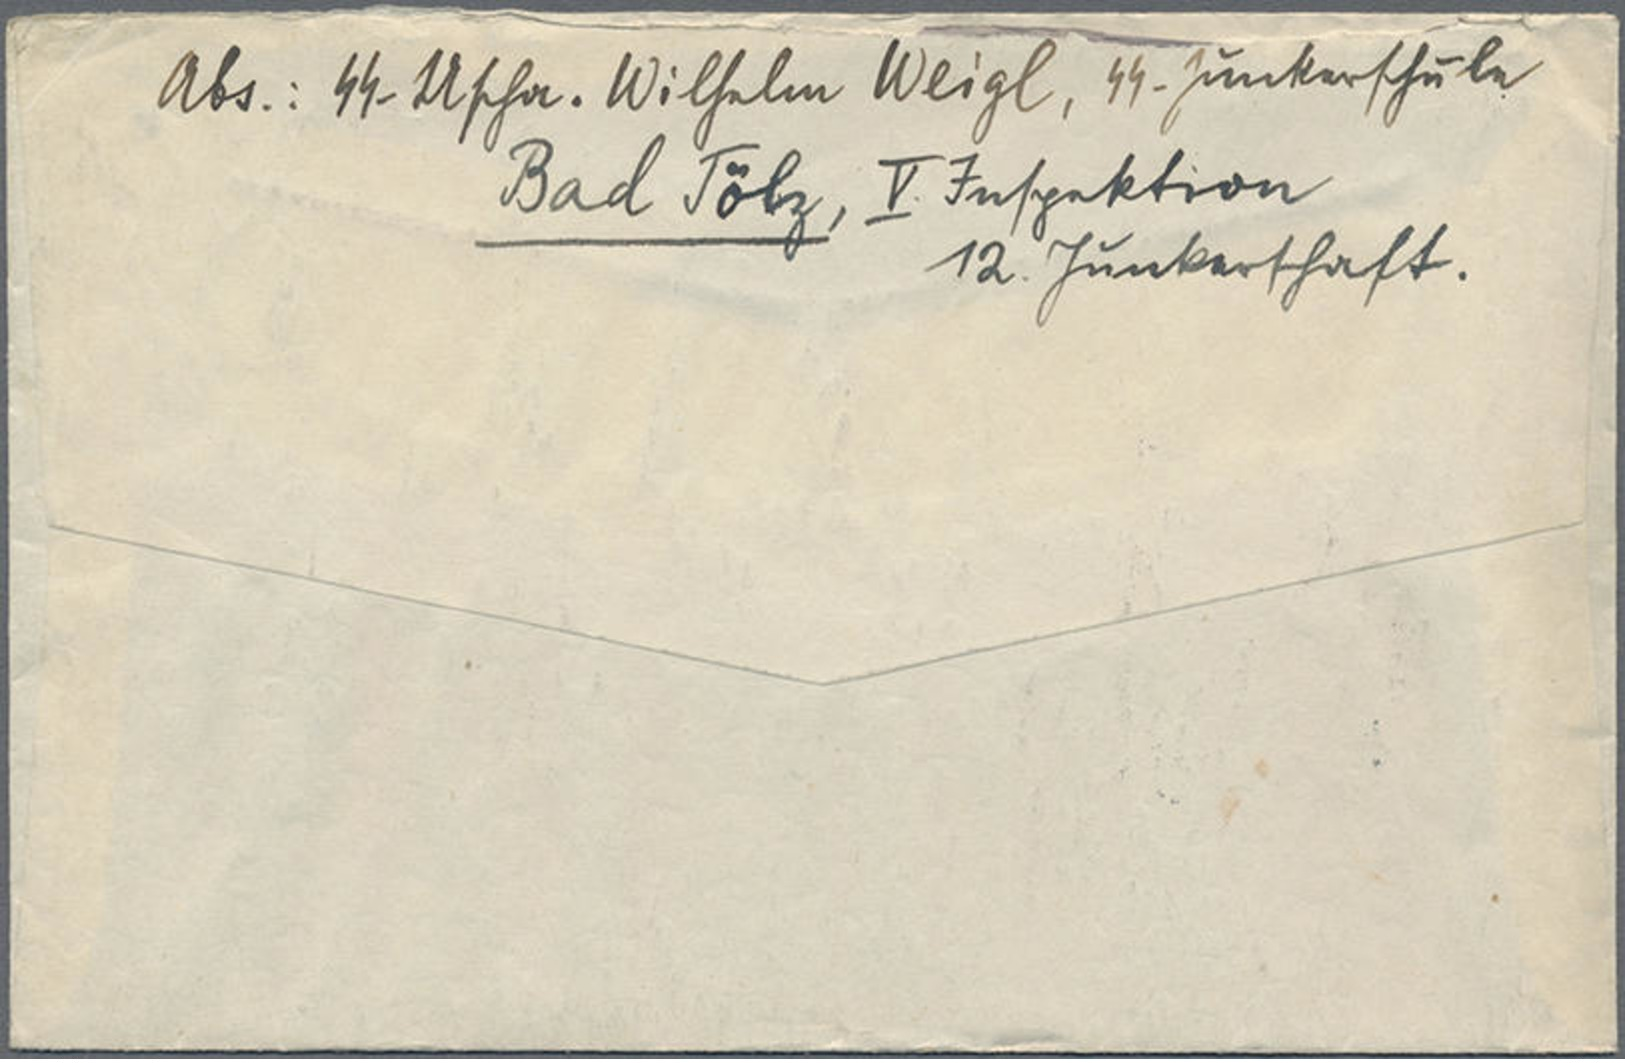 Abs.: SS-Uscha. Wilhelm Weigl, SS-Junkerschule
Bad Tölz, V. Inspektion
12. Junkerschaft.